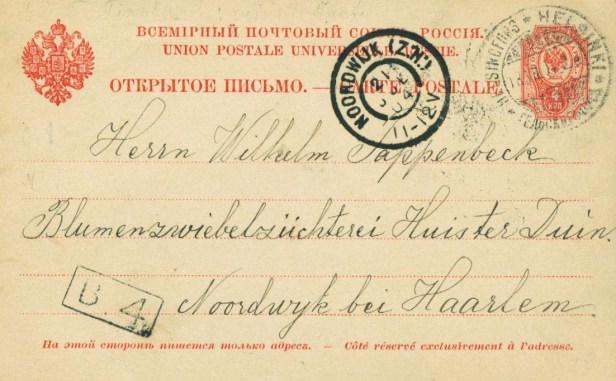 ВСЕМІРНЫЙ ПОЧТОВЫЙ РОССІЯ.
UNION POSTALE
ОТКРЫТОЕ ПИСЬМО. — CARTE POSTALE
NOORDWIJK (Z.H.)
11-12V
HELSINKI
HELSINGFORS
4
КОП
Herrn Wilhelm Pappenbeck
Blumenzwiebelzüchterei Huister Duin.
B. 4.
Noordwyk bei Haarlem.
На этой сторонѣ пишется только адресъ. — Côté réservé exclusivement à l'adresse.